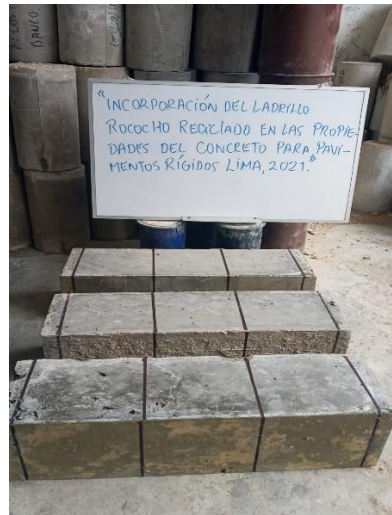 BANCO
"INCORPORACIÓN DEL LADRILLO
ROCOCHO RECICLADO EN LAS PROPIE-
DADES DEL CONCRETO PARA PAVI-
MENTOS RÍGIDOS LIMA, 2021."